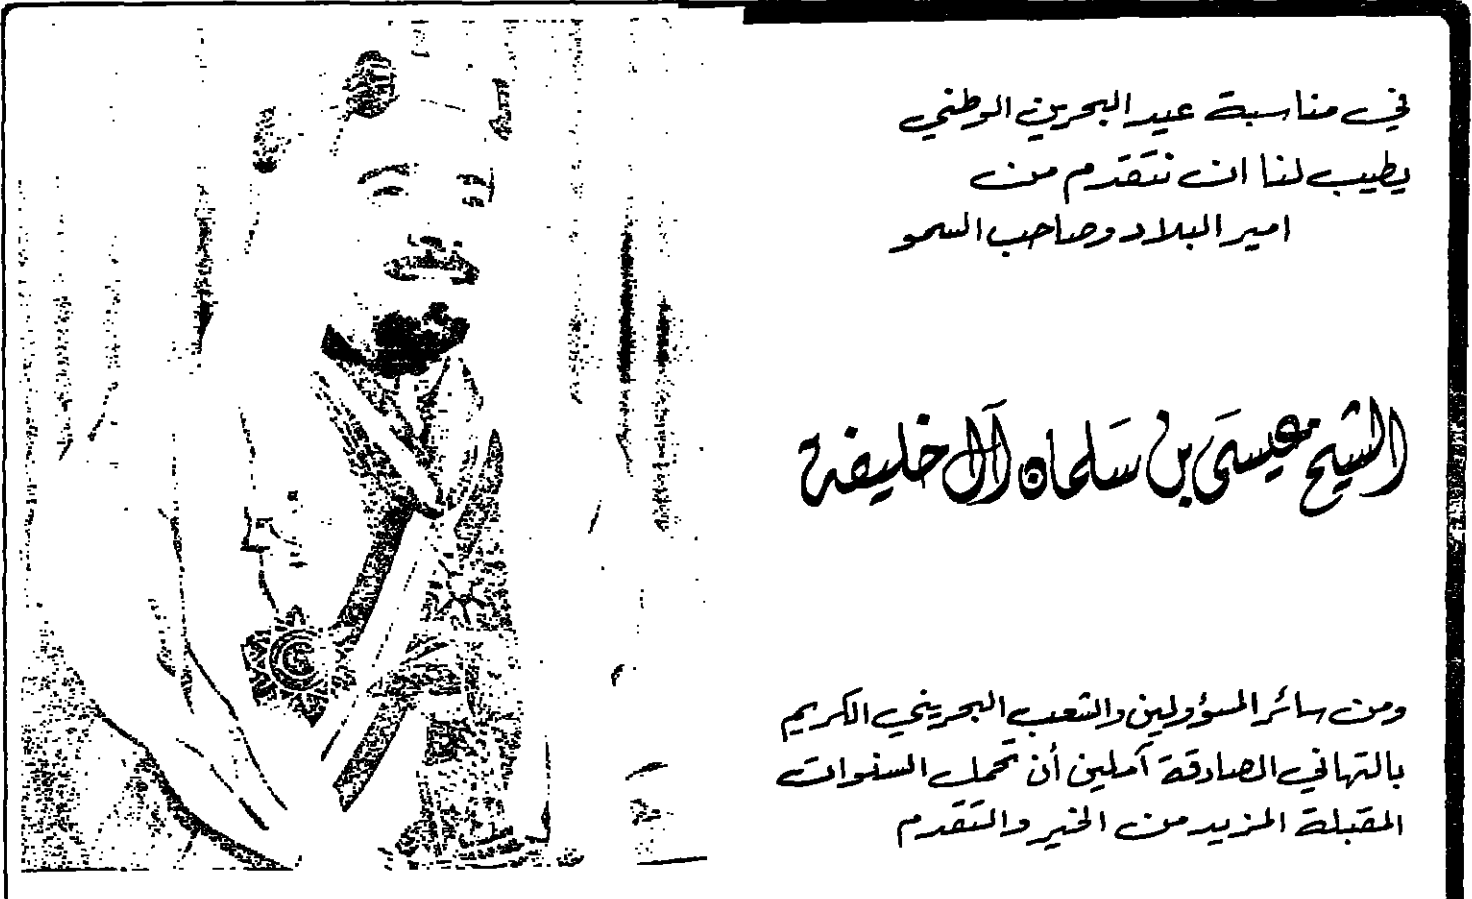 في مناسبة عيد البحرين الوطني
يطيب لنا ان نتقدم من
امير البلاد وصاحب السمو
الشيخ عيسى بن سلمان آل خليفة
ومن سائر المسؤولين والشعب البحريني الكريم
بالتهاني الصادقة آملين أن تحمل السنوات
المقبلة المزيد من الخير والتقدم